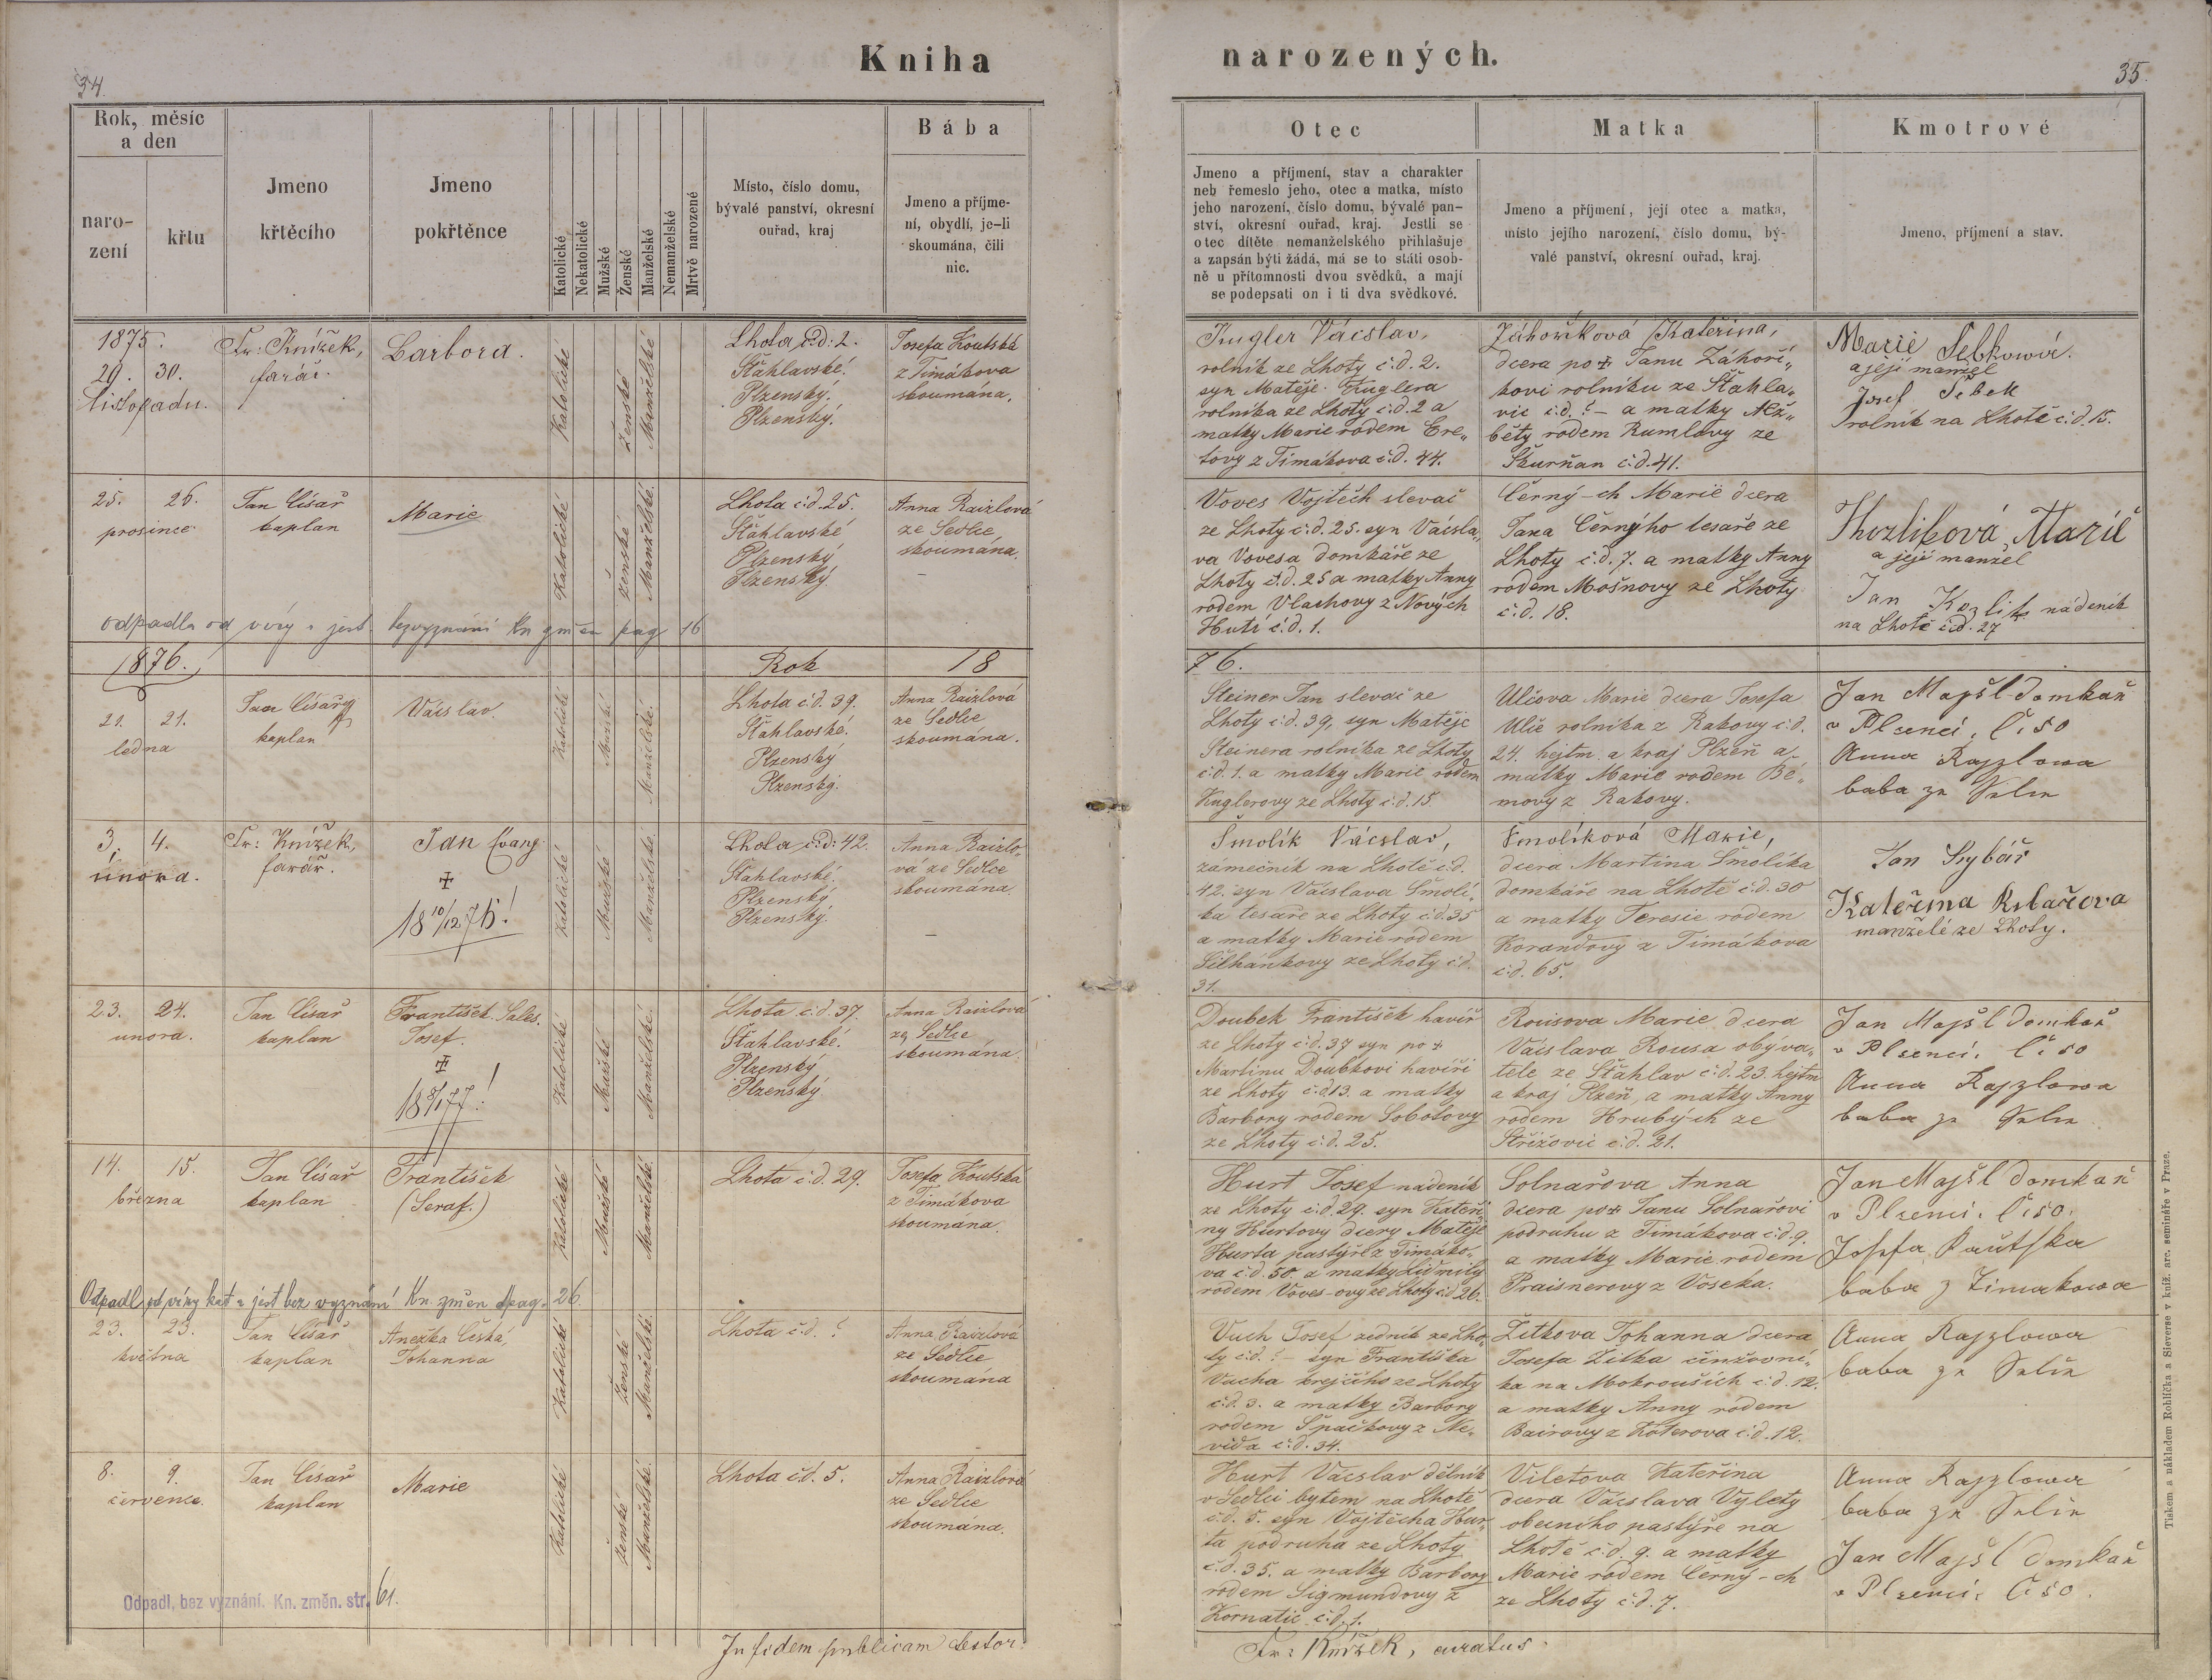 34.
Kniha
narozených.
35.
Rok, měsíc
a den
naro-
zení
křtu
Jmeno
křtěcího
Jmeno
pokřtěnce
Katolické
Nekatolické
Mužské
Ženské
Manželské
Nemanželské
Mrtvě narozené
Místo, číslo domu,
bývalé panství, okresní
ouřad, kraj
Bába
Jmeno a příjme-
ní, obydlí, je-li
skoumána, čili
nic.
Otec
Jmeno a příjmení, stav a charakter
neb řemeslo jeho, otec a matka, místo
jeho narození, číslo domu, bývalé pan-
ství, okresní ouřad, kraj. Jestli se
otec dítěte nemanželského přihlašuje
a zapsán býti žádá, má se to státi osob-
ně u přítomnosti dvou svědků, a mají
se podepsati on i ti dva svědkové.
Matka
Jmeno a příjmení, její otec a matka,
místo jejího narození, číslo domu, bý-
valé panství, okresní ouřad, kraj.
Kmotrové
Jmeno, příjmení a stav.
1875.
29. 30.
listopadu.
Fr: Knížek,
farář.
Barbora.
Katolické
Ženské
Manželské
Lhota č:d: 2.
Šťáhlavské.
Plzenský.
Plzenský.
Josefa Koutská
z Timákova
skoumána.
Kugler Václav,
rolník ze Lhoty č.d. 2.
syn Matěje Kuglera
rolníka ze Lhoty č.d. 2 a
matky Marie rodem Cre„
tovy z Timákova č.d. 44.
Záhoříková Kateřina,
dcera po ‡ Janu Záhoří„
kovi rolníku ze Šťáhla„
vic č.d. ? – a matky Alž„
běty rodem Rumlovy ze
Škurňan č.d. 41.
Marie Šebkowá.
a její manžel
Josef Šebek
rolník na Lhotě č.d. 15.
25. 26.
prosince
Jan Císař
kaplan
Marie
Katolické
Ženské
Manželské.
Lhota č.d. 25.
Šťáhlavské
Plzenský
Plzenský
Anna Raizlová
ze Sedlce
skoumána.
Voves Vojtěch slevač
ze Lhoty č.d. 25. syn Václa„
va Vovesa domkáře ze
Lhoty č.d. 25 a matky Anny
rodem Vlachovy z Nových
Hutí č.d. 1.
Černý-ch Marie dcera
Jana Černýho tesaře ze
Lhoty č.d. 7. a matky Anny
rodem Mošnovy ze Lhoty
č.d. 18.
Kozlíková Marie
a její manžel
Jan Kozlík nádeník
na Lhotě č.d. 27
odpadla od víry a jest bezvyznání Kn změn pag 16
1876.
Rok 18
76.
21. 21.
ledna
Jan Císař
kaplan
Václav.
Katolické
Mužské
Manželské.
Lhota č.d. 39.
Šťahlavské.
Plzenský
Plzenský.
Anna Raizlová
ze Sedlce
skoumána.
Steiner Jan slevač ze
Lhoty č.d. 39, syn Matěje
Steinera rolníka ze Lhoty
č.d. 1. a matky Marie rodem
Kuglerovy ze Lhoty č.d. 15.
Ulčova Marie dcera Josefa
Ulče rolníka z Rakovy č.d.
24. hejtm. a kraj Plzeň a
matky Marie rodem Bé„
movy z Rakovy.
Jan Majšl domkař
v Plzenci, Č: 50
Anna Rajzlowa
baba ze Selce
3. 4.
února.
Fr: Knížek,
farář.
Jan Evang
‡
18 10/12 76!
Katolické
Mužské
Manželské.
Lhota č:d: 42.
Šťahlavské.
Plzenský
Plzenský.
Anna Raizlo„
vá ze Sedlce
skoumána.
Šmolík Václav,
zámečník na Lhotě č.d.
42. syn Václava Šmolí„
ka tesaře ze Lhoty č.d. 35
a matky Marie rodem
Šilhánkovy ze Lhoty č.d.
31.
Šmolíková Marie,
dcera Martina Šmolíka
domkáře na Lhotě č.d. 30
a matky Teresie rodem
Korandovy z Timákova
č.d. 65.
Jan Rybář
Kateřina Ribařova
manželé ze Lhoty.
23. 24.
února.
Jan Císař
kaplan
František Sales.
Josef.
‡
Katolické
Mužské
Manželské.
Lhota č.d. 37.
Šťahlavské.
Plzenský
Plzenský
Anna Raizlová
ze Sedlce
skoumána.
Doubek František havíř
ze Lhoty č.d. 37 syn po ‡
Martinu Doubkovi havíři
ze Lhoty č.d. 13. a matky
Barbory rodem Sobotovy
ze Lhoty č.d. 25.
Rousova Marie dcera
Václava Rousa obýva„
tele ze Šťáhlav č.d. 23. hejtm
a kraj Plzeň, a matky Anny
rodem Hrubých ze
Střížovic č.d. 21.
Jan Majšl domkař
v Plzenci. Č: 50
Anna Rajzlowa
baba ze Selce
14. 15.
března
Jan Císař
kaplan
František
(Seraf.)
Katolické
Mužské
Manželské
Lhota č.d. 29.
Josefa Koutská
z Timákova
skoumána.
Hurt Josef nádeník
ze Lhoty č.d. 29. syn Kateři
ny Hurtovy dcery Matěje
Hurta pastýře z Timáko„
va č.d. 50 a matky Lidmily
rodem Voves-ovy ze Lhoty č.d. 26.
Solnařova Anna
dcera po ‡ Janu Solnařovi
podruhu z Timákova č.d. 9.
a matky Marie rodem
Praisnerovy z Voseka.
Jan Majšl domkař
v Plzenci. Č: 50.
Josefa Kautska
baba z Timakowa
Odpadl od víry kat a jest bez vyznání Kn. změn pag. 26.
23. 23.
května
Jan Císař
kaplan
Anežka Česká,
Johanna
Katolické
Ženské
Manželské
Lhota č.d. ?
Anna Raizlová
ze Sedlce
skoumána
Vuch Josef zedník ze Lho„
ty č.d. ? – syn Františka
Vucha krejčího ze Lhoty
č.d. 3. a matky Barbory
rodem Špačkovy z Ne„
vida č.d. 34.
Žitkova Johanna dcera
Josefa Žitka činžovní„
ka na Mokrouších č.d. 12.
a matky Anny rodem
Bairovy z Koterova č.d. 12.
Anna Rajzlowa
baba ze Selce
8. 9.
července.
Jan Císař
kaplan
Marie
Katolické
Ženské
Manželské.
Lhota č.d. 5.
Anna Raizlová
ze Sedlce
skoumána.
Hurt Václav dělník
v Sedlci bytem na Lhotě
č.d. 5. syn Vojtěcha Hur„
ta podruha ze Lhoty
č.d. 35. a matky Barbory
rodem Sigmundovy z
Kornatic č.d. 1.
Viletova Kateřina
dcera Václava Vylety
obecního pastýře na
Lhotě č.d. 9. a matky
Marie rodem Černý-ch
ze Lhoty č.d. 7.
Anna Rajzlowa
baba ze Selce
Jan Majšl domkař
v Plzenci. Č: 50.
Odpadl, bez vyznání. Kn. změn. str. 61.
In fidem publicam testor:
Fr: Knížek, curatus.
Tiskem a nákladem Rohlíčka a Sieverse v kníž. arc. semináře v Praze.